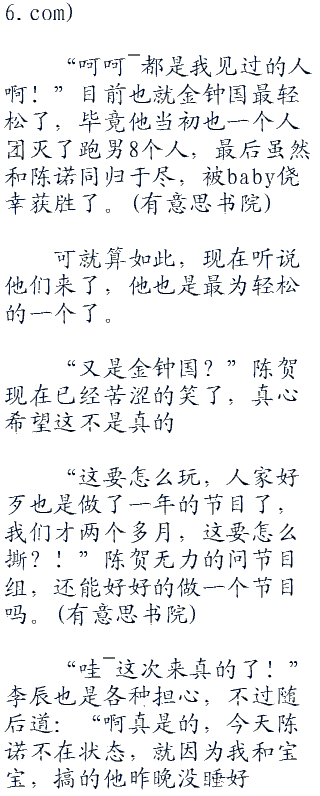 6.com)
“呵呵¯都是我见过的人
啊！”目前也就金钟国最轻
松了，毕竟他当初也一个人
团灭了跑男8个人，最后虽然
和陈诺同归于尽，被baby侥
幸获胜了。(有意思书院)
可就算如此，现在听说
他们来了，他也是最为轻松
的一个了。
“又是金钟国？”陈贺
现在已经苦涩的笑了，真心
希望这不是真的
“这要怎么玩，人家好
歹也是做了一年的节目了，
我们才两个多月，这要怎么
撕？！”陈贺无力的问节目
组，还能好好的做一个节目
吗。(有意思书院)
“哇¯这次来真的了！”
李辰也是各种担心，不过随
后道：“啊真是的，今天陈
诺不在状态，就因为我和宝
宝，搞的他昨晚没睡好